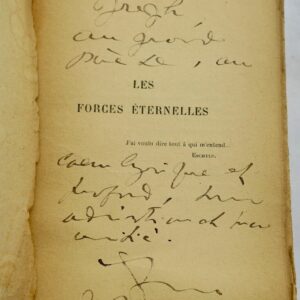 Gregh
au grand
poète, au
LES
FORCES ÉTERNELLES
J'ai voulu dire tout à qui m'entend...
ESCHYLE.
cœur lyrique et
profond, mon
admiration et mon
amitié.